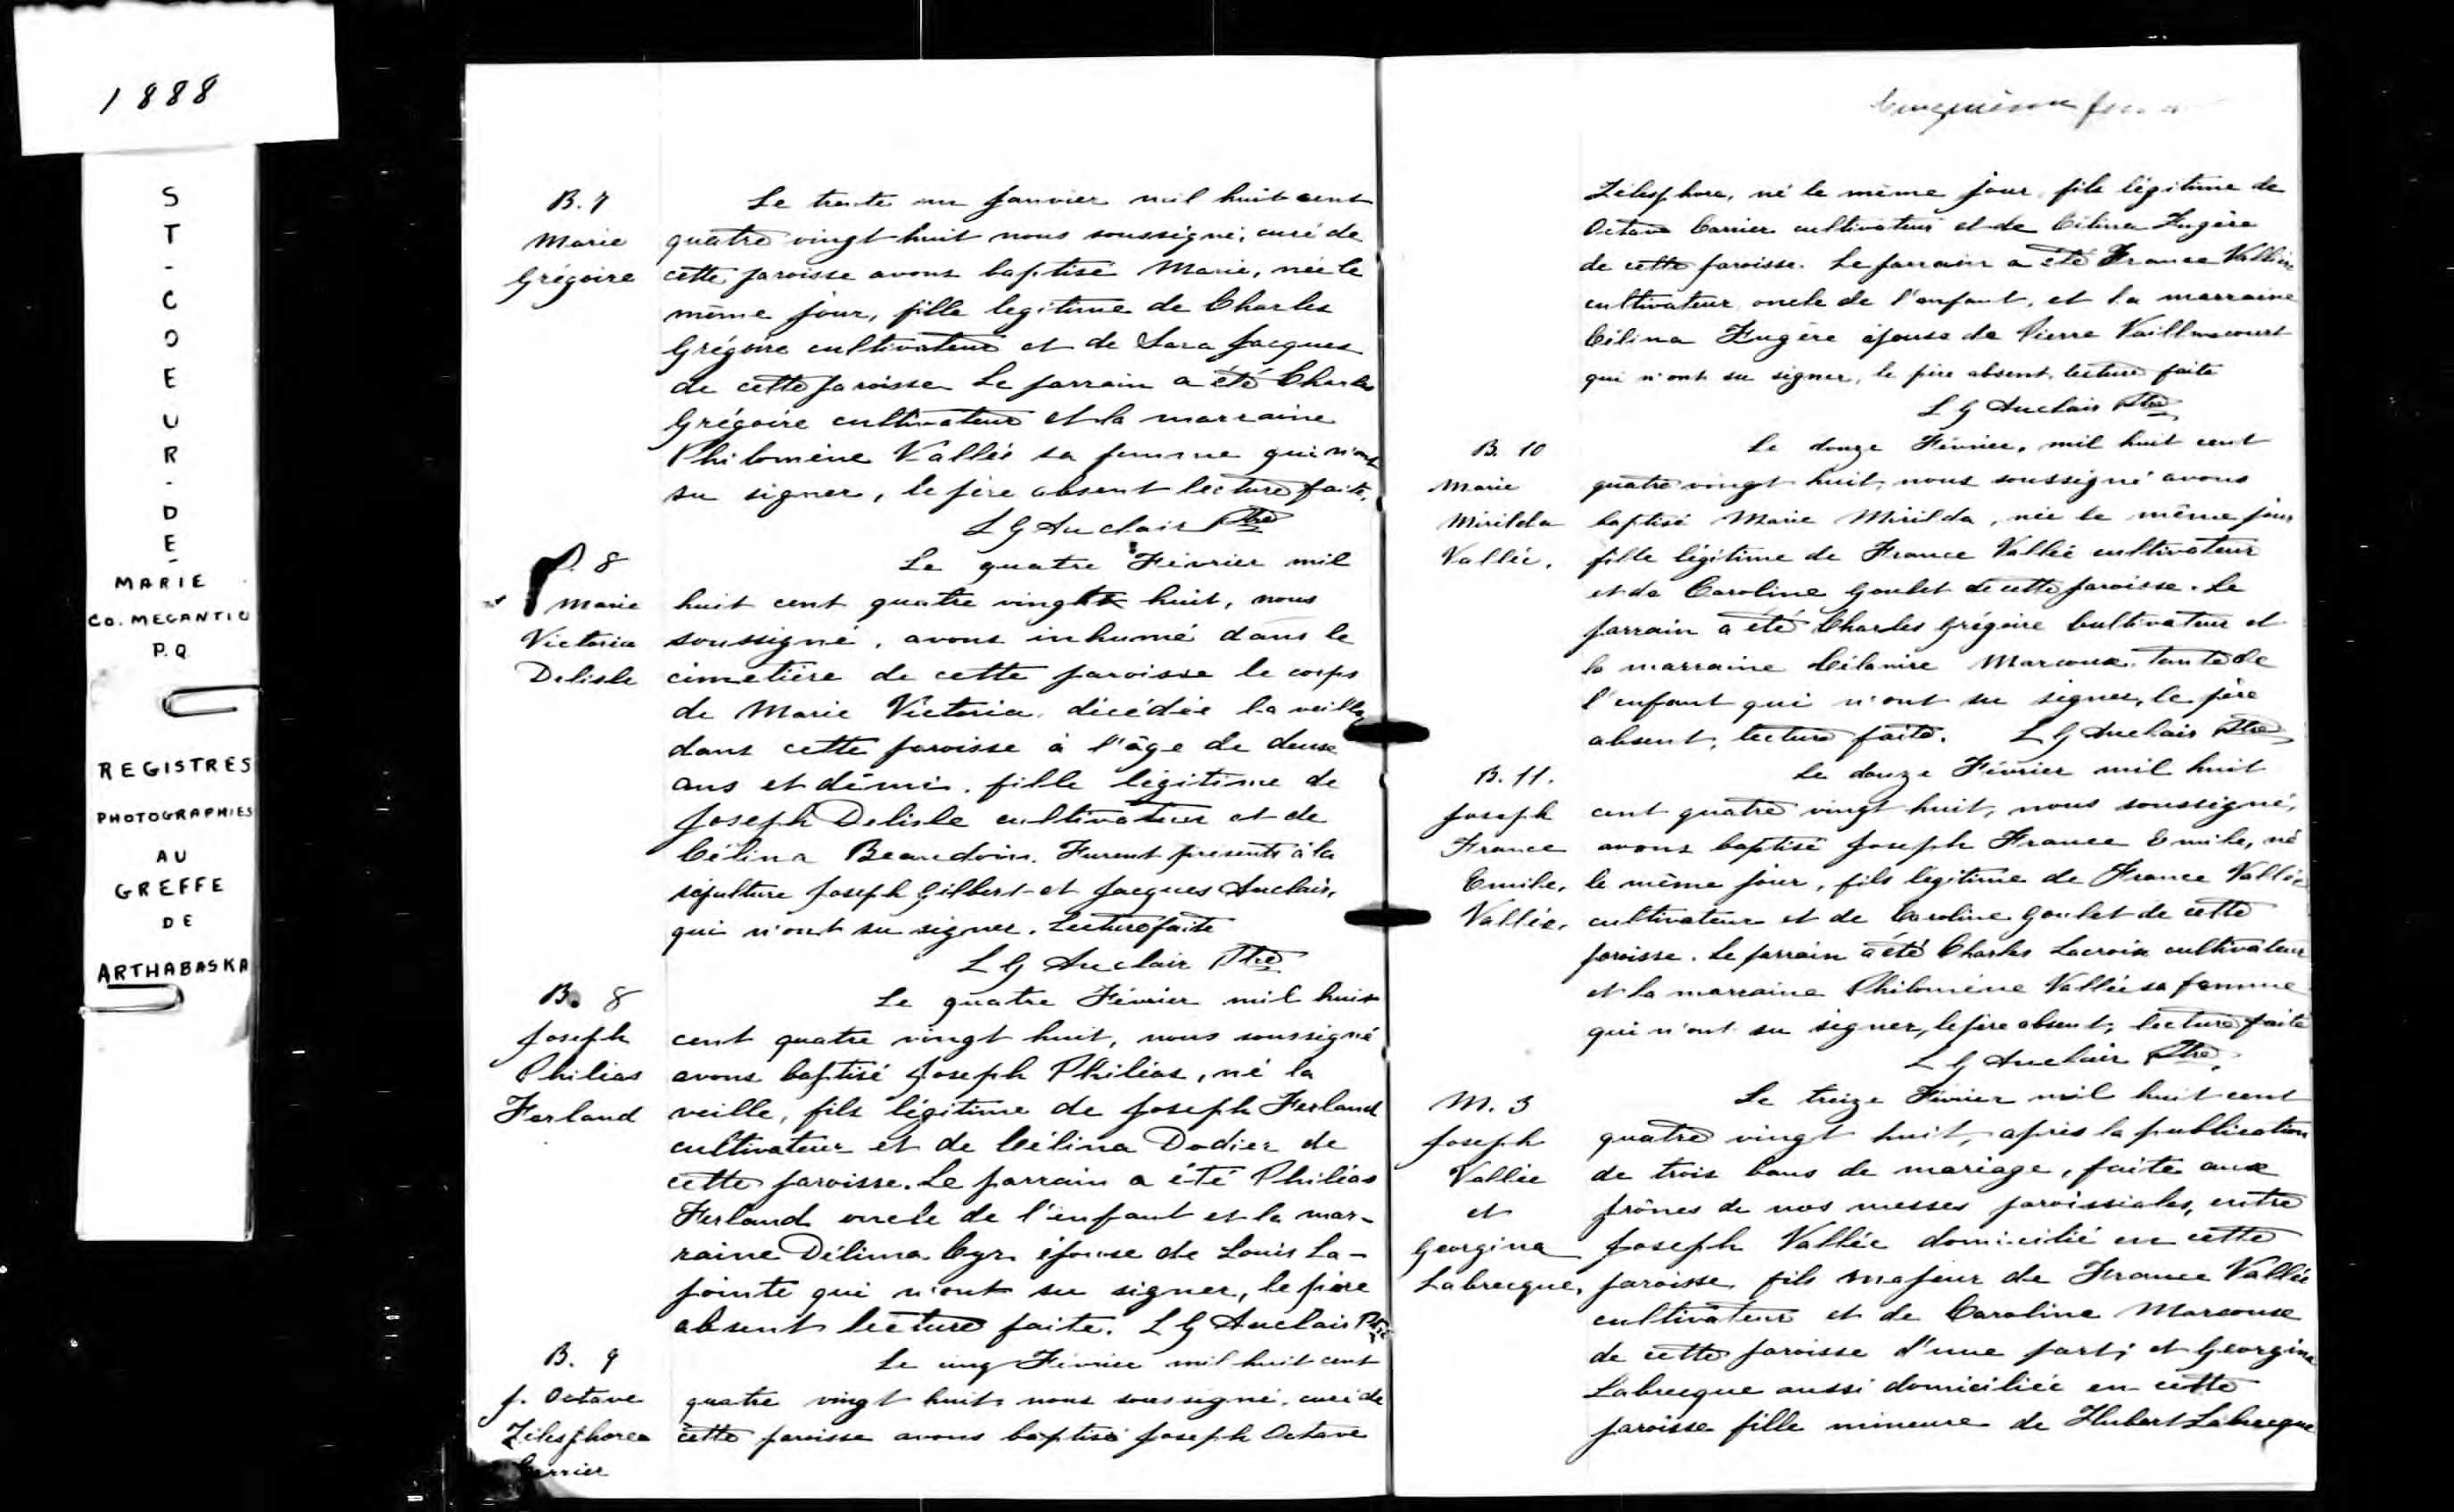 1888
S
T
-
C
O
E
U
R
-
D
E
-
MARIE
CO. MEGANTIC
P.Q.
REGISTRES
PHOTOGRAPHIES
AU
GREFFE
DE
ARTHABASKA
B. 7
Marie
Grégoire
Le trente un Janvier mil huit cent
quatre vingt huit nous soussigné, curé de
cette paroisse avons baptisé Marie, née le
même jour, fille legitime de Charles
Grégoire cultivateur et de Sara Jacques
de cette paroisse Le parrain a été Charles
Grégoire cultivateur et la marraine
Philomène Vallée sa femme qui n'ont
su signer, le père absent lecture faite.
L G Auclair Ptre
8
Marie
Victoria
Delisle
Le quatre Février mil
huit cent quatre vingt huit, nous
soussigné, avons inhumé dans le
cimetière de cette paroisse le corps
de Marie Victoria, décédée la veille
dans cette paroisse à l'âge de deux
ans et démi, fille légitime de
Joseph Delisle cultivateur et de
Célina Beaudoin. Furent présents à la
sépulture Joseph Gilbert et Jacques Auclair,
qui n'ont su signer. Lecture faite
L G Auclair Ptre
B. 8
Joseph
Philias
Ferland
Le quatre Février mil huit
cent quatre vingt huit, nous soussigné
avons baptisé Joseph Philias, né la
veille, fils légitime de Joseph Ferland
cultivateur et de Célina Dodier de
cette paroisse. Le parrain a été Philias
Ferland oncle de l'enfant et la mar-
raine Délima Cyr épouse de Louis La-
pointe qui n'ont su signer, le père
absent lecture faite. L G Auclair Ptre
B. 9
J. Octave
Zélesphore
Carrier
Le cinq Février mil huit cent
quatre vingt huit nous soussigné, curé de
cette paroisse avons baptisé Joseph Octave
Zélesphore, né le même jour, fils légitime de
Octave Carrier cultivateur et de Célina Fugère
de cette paroisse. Le parrain a été France Vallée
cultivateur oncle de l'enfant, et la marraine
Célina Fugère épouse de Pierre Vaillancourt
qui n'ont su signer, le père absent, lecture faite
L G Auclair Ptre
B. 10
Marie
Mirilda
Vallée.
Le douze Février, mil huit cent
quatre vingt huit, nous soussigné avons
baptisé Marie Mirilda, née le même jour
fille légitime de France Vallée cultivateur
et de Caroline Goulet de cette paroisse. Le
parrain a été Charles Grégoire Cultivateur et
la marraine Marcoux, tante de
l'enfant qui n'ont su signer, le père
absent, lecture faite. L G Auclair Ptre
B. 11.
Joseph
France
Emile,
Vallée,
Le douze Février mil huit
cent quatre vingt huit, nous soussigné,
avons baptisé Joseph France Emile, né
le même jour, fils légitime de France Vallée
cultivateur et de Caroline Goulet de cette
paroisse. Le parrain a été Charles Lacroix cultivateur
et la marraine Philomène Vallée sa femme
qui n'ont su signer, le père absent, lecture faite
L G Auclair Ptre.
M. 3
Joseph
Vallée
et
Georgina
Labrecque,
Le treize Février mil huit cent
quatre vingt huit, après la publication
de trois bans de mariage, faite aux
prônes de nos messes paroissiales, entre
Joseph Vallée domicilié en cette
paroisse, fils majeur de France Vallée
cultivateur et de Caroline Marcoux
de cette paroisse d'une part; et Georgina
Labrecque aussi domiciliée en cette
paroisse fille mineure de Hubert Labrecque